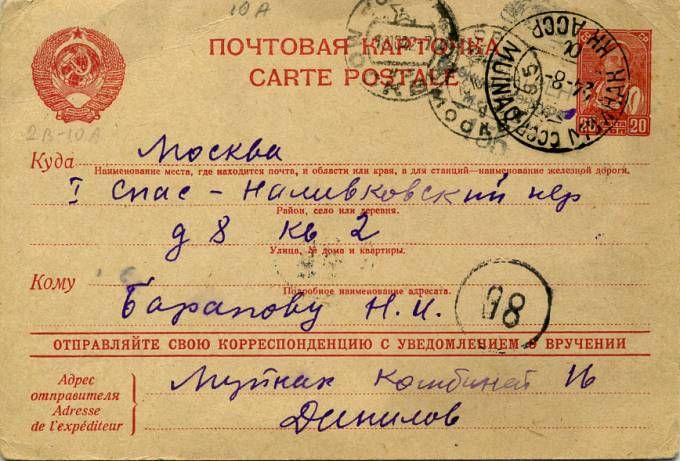 10 А
ПОЧТОВАЯ КАРТОЧКА
CARTE POSTALE
MUJNAK
20 20
2В-10А
Куда Москва
Наименование места, где находится почта, и области или края, а для станций—наименование железной дороги.
I Спас - Наливковский пер
Район, село или деревня.
д 8 кв 2
Улица, № дома и квартиры.
Кому
Подробное наименование адресата.
Баранову Н. И.
98
ОТПРАВЛЯЙТЕ СВОЮ КОРРЕСПОНДЕНЦИЮ С УВЕДОМЛЕНИЕМ О ВРУЧЕНИИ
Адрес
отправителя
Adresse
de l'expéditeur
Муйнак Комбинат
Данилов